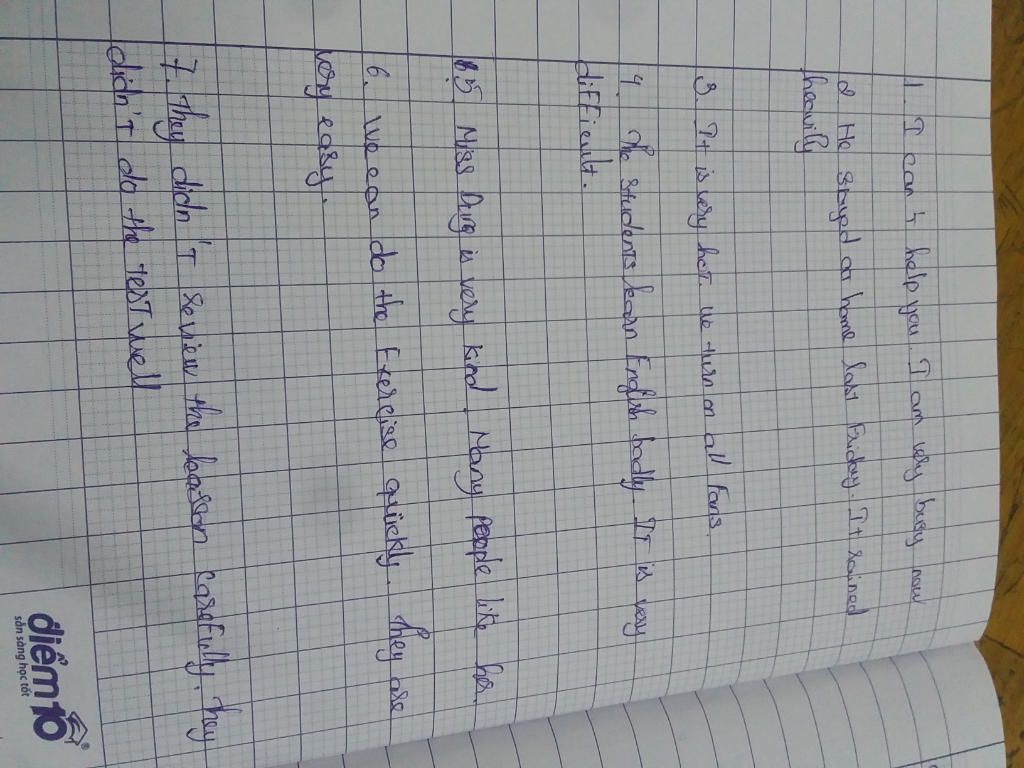 1. I can't help you. I am very busy now
2. He stayed at home last Friday. It rained
heavily
3. It is very hot. We turn on all fans.
4. The students learn English badly It is very
difficult.
5. Miss Dung is very kind. Many people like her.
6. We can do the Exercise quickly. They are
very easy.
7. They didn't review the leasson carefully. They
didn't do the test well
điểm10
sẵn sàng học tốt